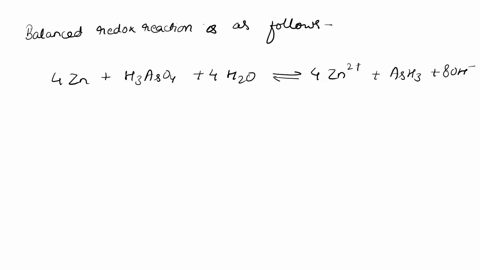 Balanced redox reaction is as follows -
4 Zn + H₃AsO₄ + 4 H₂O ⇌ 4 Zn²⁺ + AsH₃ + 8OH⁻